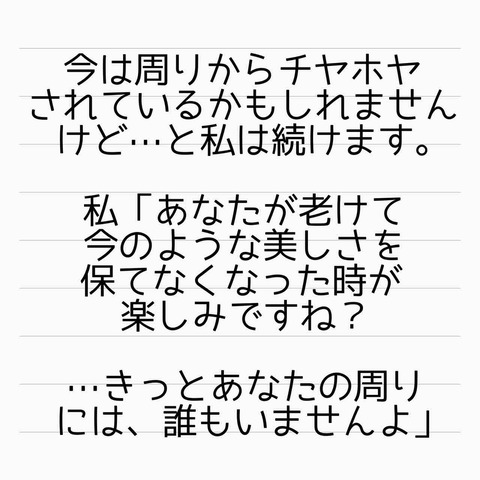 今は周りからチヤホヤ
されているかもしれません
けど…と私は続けます。
私「あなたが老けて
今のような美しさを
保てなくなった時が
楽しみですね？
…きっとあなたの周り
には、誰もいませんよ」